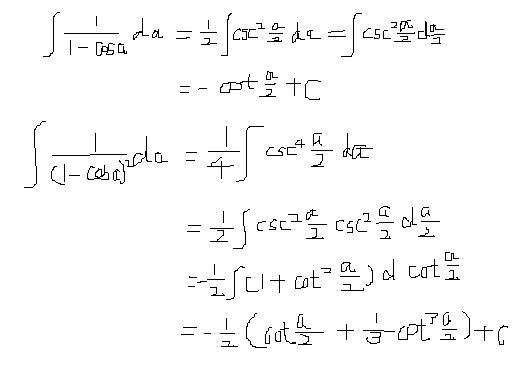 ∫ 1/(1-cosa) da = 1/2 ∫ csc² a/2 da = ∫ csc² a/2 d a/2
= - cot a/2 + C
∫ 1/(1-cosa)² da = 1/4 ∫ csc⁴ a/2 da
= 1/2 ∫ csc² a/2 csc² a/2 d a/2
= -1/2 ∫ (1 + cot² a/2) d cot a/2
= - 1/2 (cot a/2 + 1/3 cot³ a/2) + C